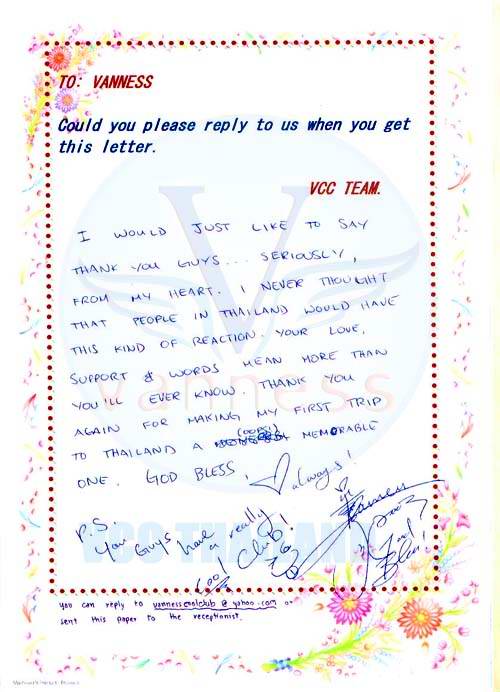 TO: VANNESS
Could you please reply to us when you get
this letter.
VCC TEAM.
I WOULD JUST LIKE TO SAY
THANK YOU GUYS... SERIOUSLY,
FROM MY HEART. I NEVER THOUGHT
THAT PEOPLE IN THAILAND WOULD HAVE
THIS KIND OF REACTION. YOUR LOVE,
SUPPORT & WORDS MEAN MORE THAN
YOU'LL EVER KNOW. THANK YOU
AGAIN FOR MAKING MY FIRST TRIP
(OOPS!)
TO THAILAND A MEMORABLE
ONE. GOD BLESS, always!
P.S.
You Guys have a really
cool club!
Vanness
God
Bless!
V
vanness
VCC THAILAND
you can reply to vannesscoolclub@yahoo.com or
sent this paper to the receptionist.